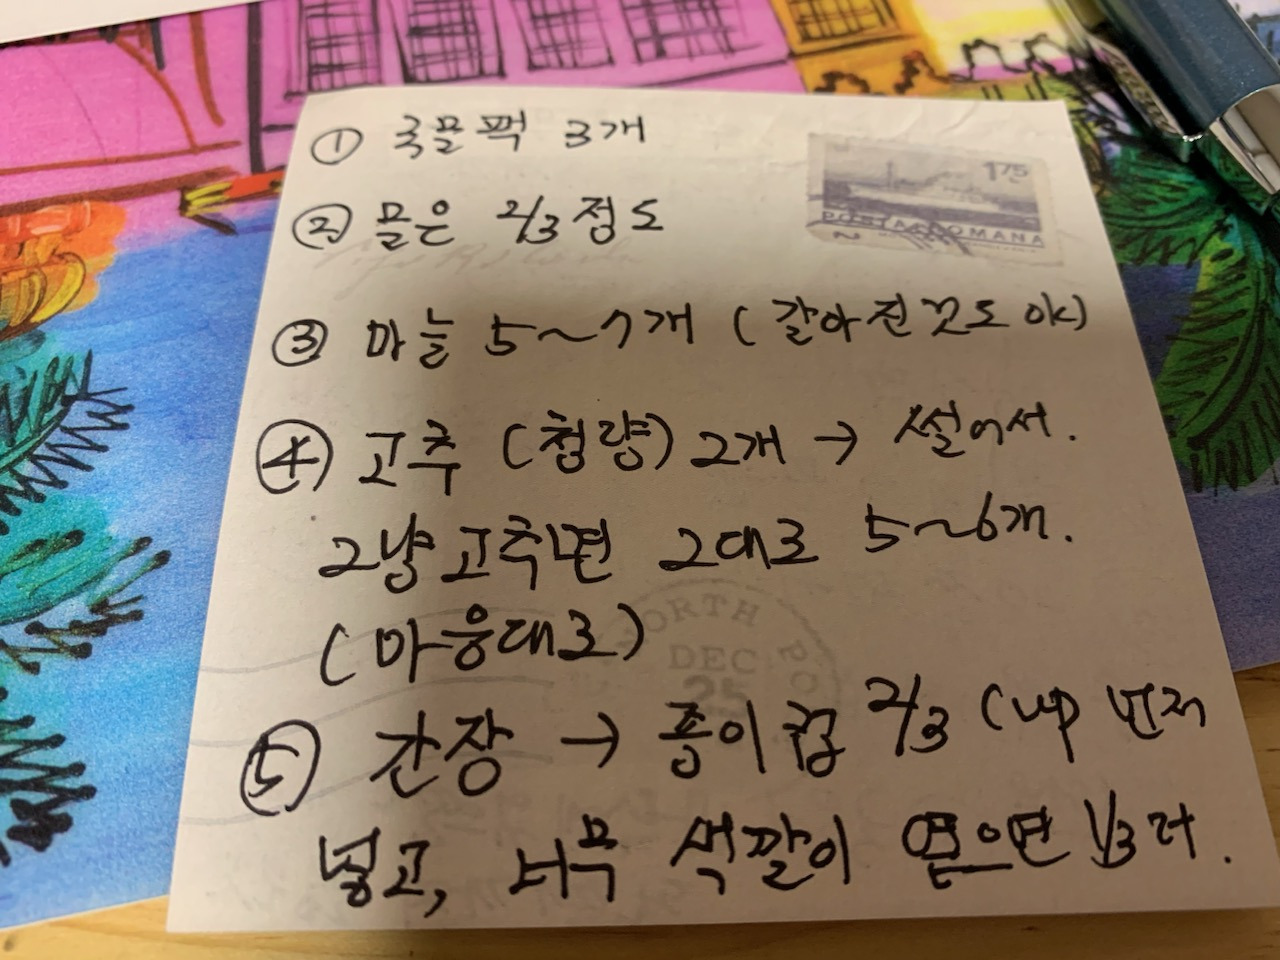 ① 국물팩 3개
② 물은 2/3정도
③ 마늘 5~7개 (갈아진것도 ok)
④ 고추 (청량) 2개 → 썰어서.
그냥고추면 그대로 5~6개.
(마음대로)
⑤ 간장 → 종이컵 2/3 (
넣고, 너무 색깔이 옅으면 1/3 더.
1.75
POSTA ROMANA
NORTH PO
DEC
25